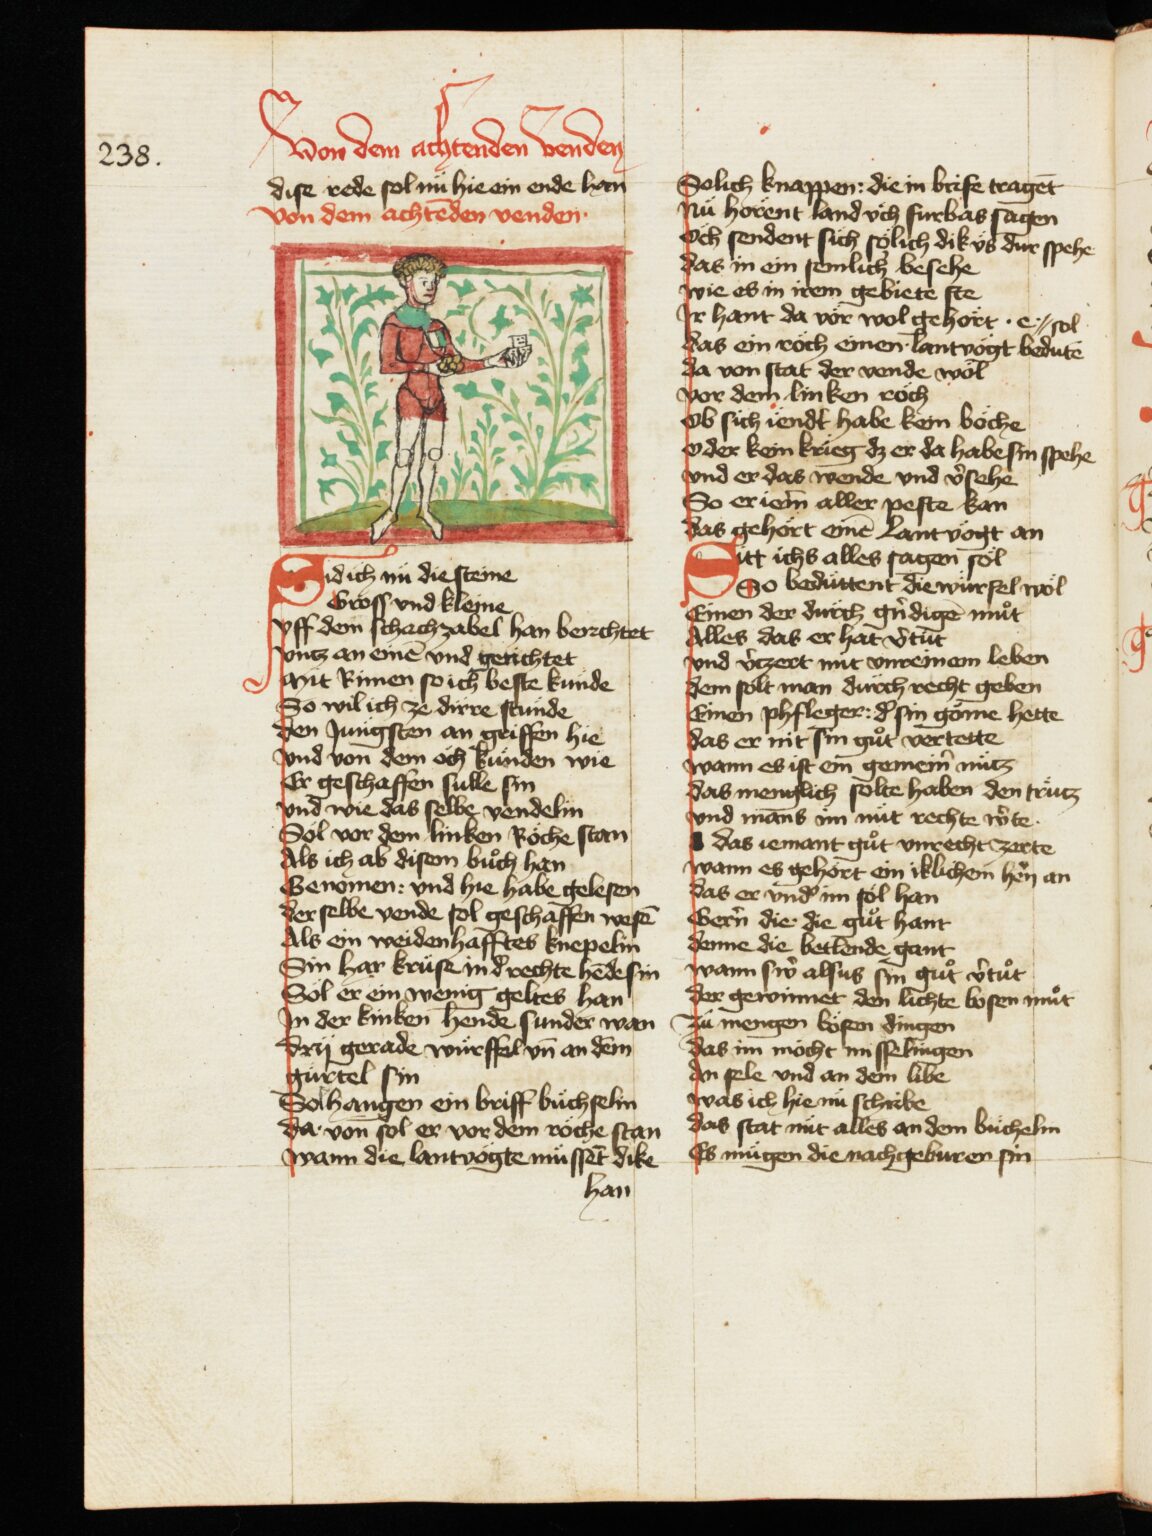 238.
Von dem achtenden venden
dise rede sol nü hie ein ende han
Von dem achtēden venden.
Sid ich nü die steine
Gross vnd kleine
Vff dem schachzabel han berichtet
Vntz an einē vnd getichtet
Mit Rimen so ich beste kunde
So wil ich ze dirre stunde
Den Jüngsten an griffen hie
Vnd von dem öch künden wie
Er geschaffen sulle sin
Vnd wie das selbe vendelin
Sol vor dem linken Röche stan
Als ich ab disem bůch han
Genomen: vnd hie habe gelesen
Der selbe vende sol geschaffen wesē
Als ein weidenhafftes knepelin
Sin har kruse in d̕ rechte hēde sin
Sol er ein wenig geltes han
In der linken hende sunder wan
Drij gerade würffel vn̄ an dem
gürtel sin
Sol hangen ein briff büchselin
Da von sol er vor dem röche stan
Wann die lantvögte müssēt dike
han
Solich knappen: die in brife tragēt
Nü hörent land vch furbas sagen
Och sendent sich sölich dik vs dur spehe
Das in ein semlich besehe
Wie es in irem gebiete ste
Ir hant da vor wol gehört . e . // sol
Das ein röch einen lantvögt bedute
Da von stat der vende wol
Vor dem linken röch
Ob sich iendt habe kein böche
Oder kein krieg dz er da habe sin spehe
Vnd er das wende vnd v̕sehe
So er iem̄ aller peste kan
Das gehört einē Lantvögt an
Sitt ichs alles sagen sol
So bedüttent die würfel wol
Einen der durch gn̄digē můt
Alles das er hat v̕tůt
Vnd v̕czert mit vnreinem leben
Dem solt man durch recht geben
Einen phfleger: d̕ sin göme hette
Das er nit sin gůt vertette
Wann es ist ein gemein̄ nütz
Das menglich solte haben den trütz
Vnd mans im nüt rechte w̕te.
das iemant gůt vnrecht zerte
Wann es gehört ein iklichem hērn an
Das er vnd̕ im sol han
Gern̄ die die gůt hant
Denne die betlende gant
Wann sw̕ alsus sin gůt v̕tůt
Der gewinnet den lichte bösen můt
Zu mengen bösen dingen
Das im möcht misselingen
An sele vnd an dem libe
Was ich hie nü schribe
Das stat nüt alles an dem büchelin
Es mügen die nachgeburen sin